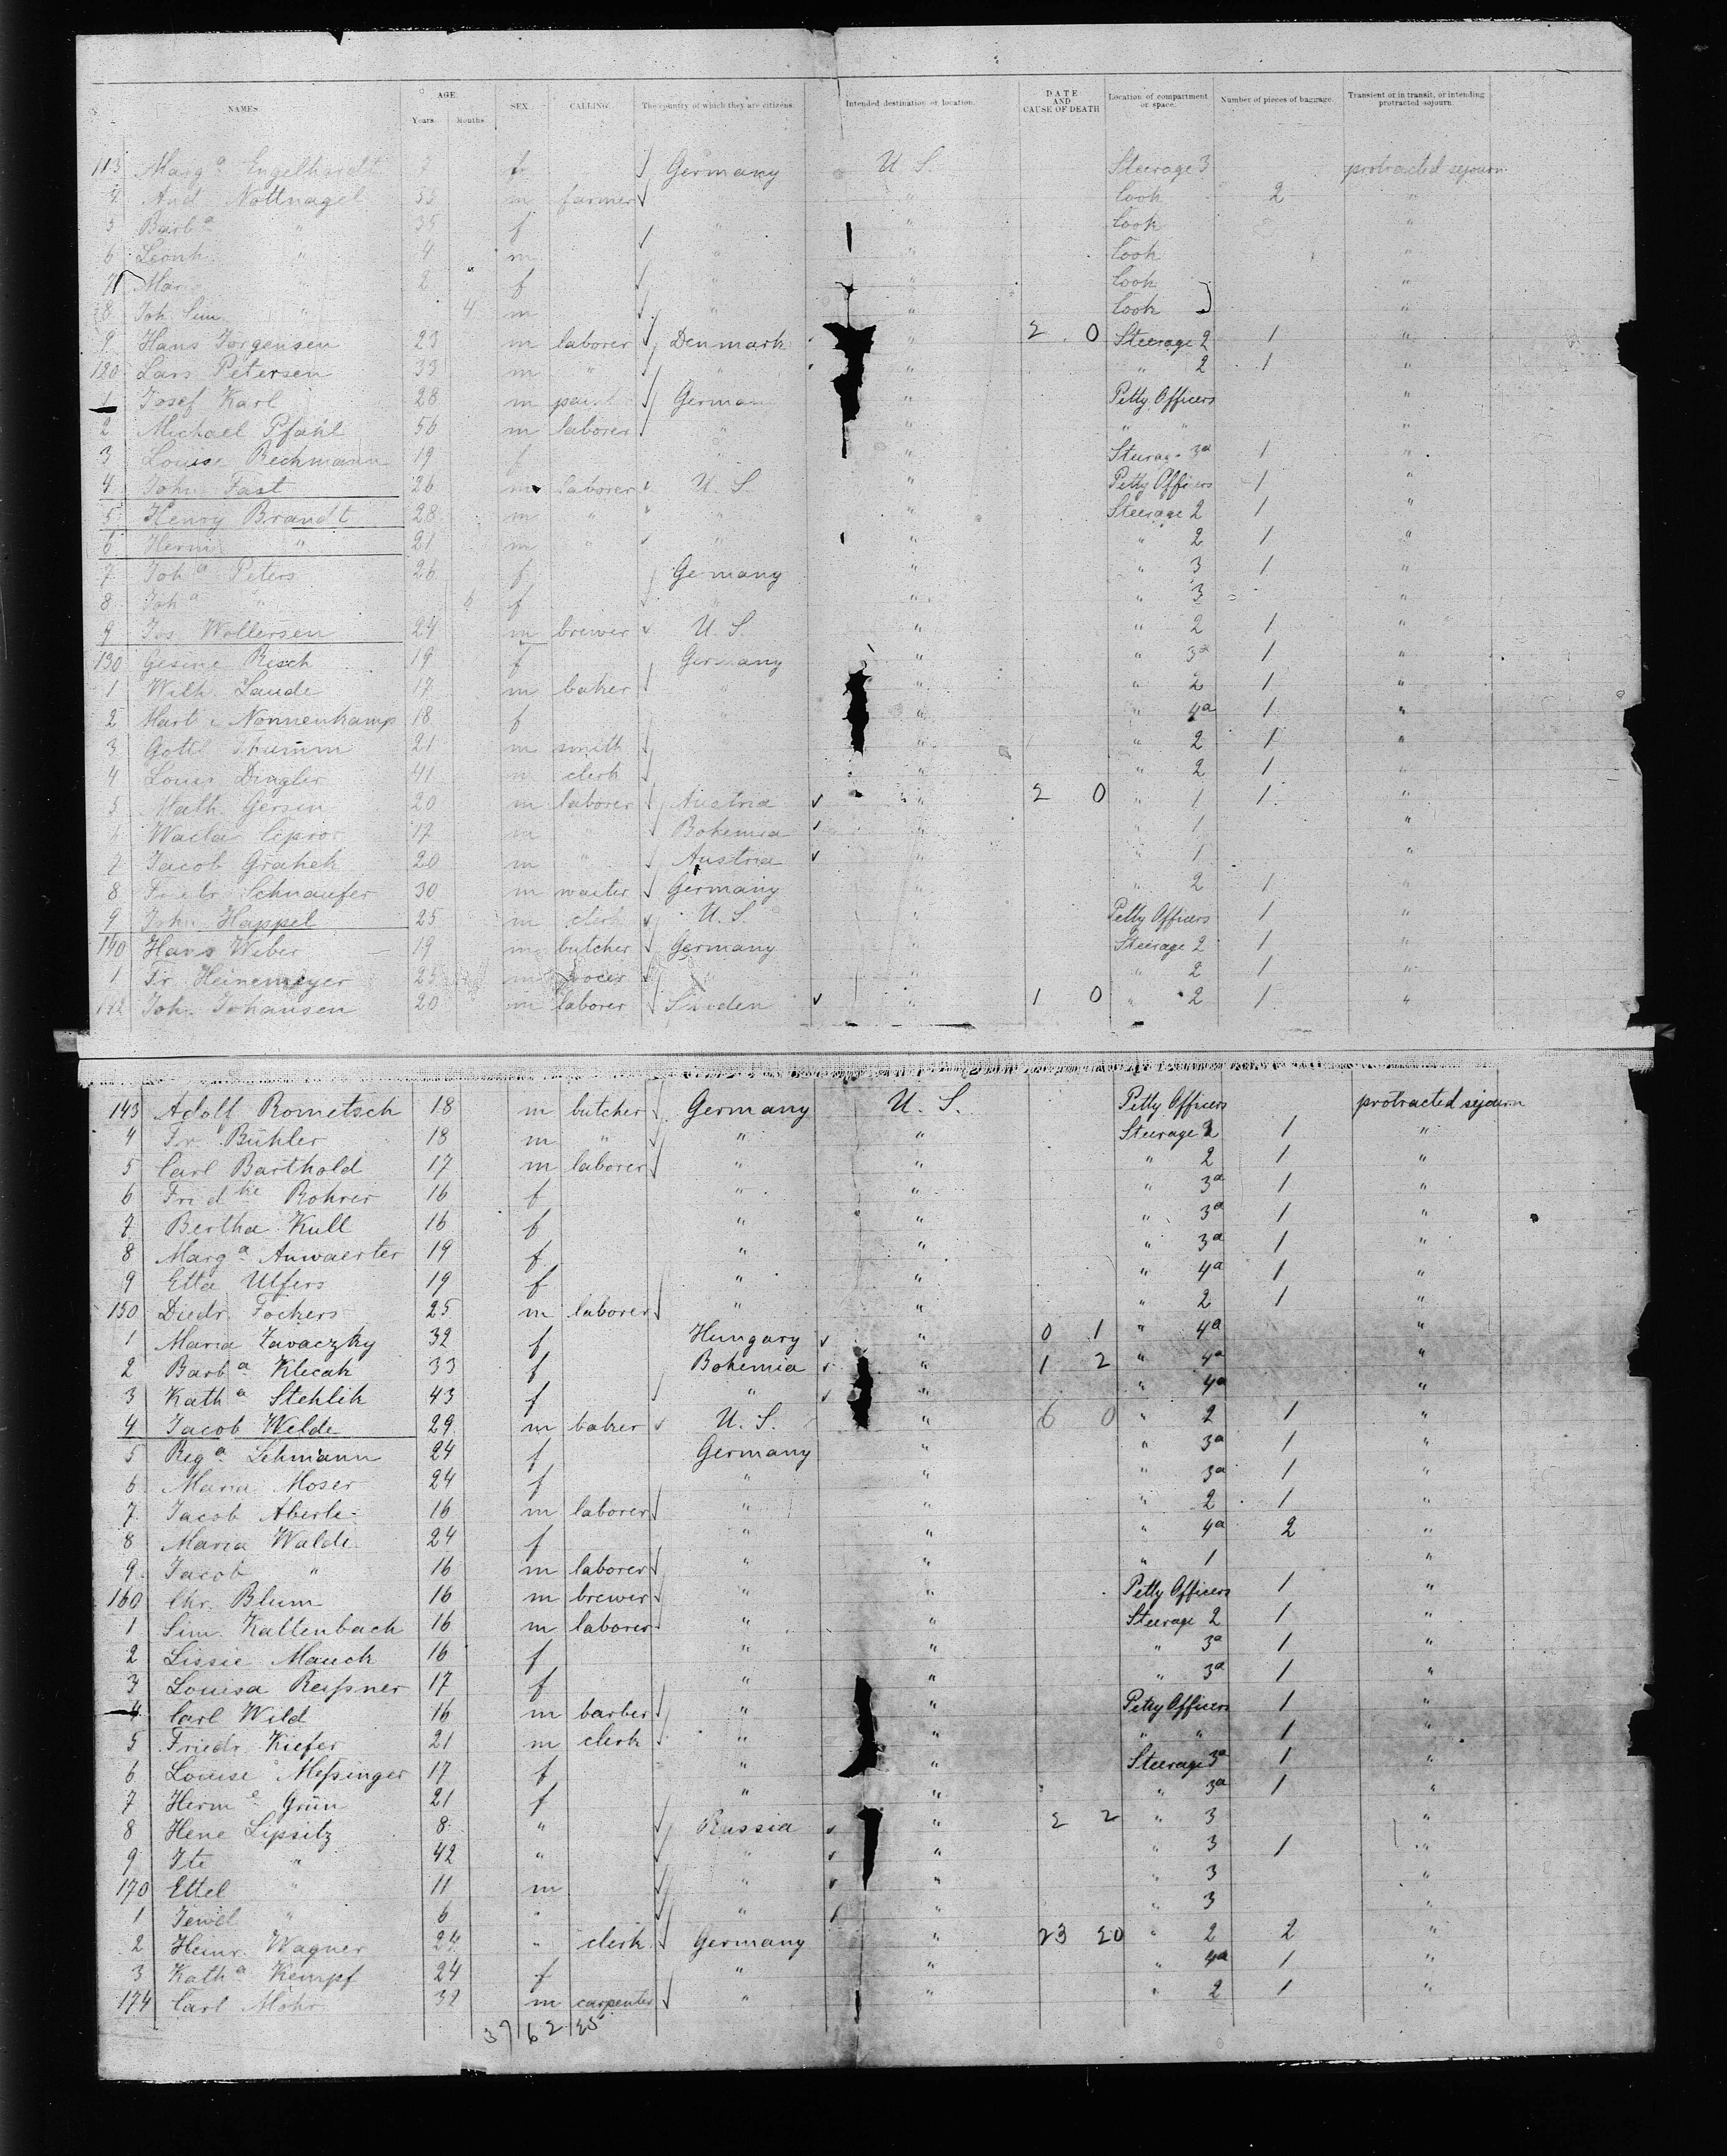 NAMES. AGE. Years. Months. SEX. CALLING. The country of which they are citizens. Intended destination or location. DATE AND CAUSE OF DEATH Location of compartment or space. Number of pieces of baggage. Transient or in transit, or intending protracted sojourn.
113 Marg a Engelhardt 7 f Germany U. S. Steerage 3 protracted sejourn
4 And. Nottnagel 55 m farmer " Cook 2 "
5 Barb a " 35 f " " Cook "
6 Leonh. " 4 m " " Cook "
7 Maria " 2 f " " Cook "
8 Joh. Sim. " 4 m " " Cook "
9 Hans Jörgensen 23 m laborer Denmark " 2 0 Steerage 2 1 "
120 Lars Petersen 33 m " " " " 2 1 "
1 Josef Karl 28 m Germany " Petty Officers "
2 Michael Pfahl 56 m laborer " " " " "
3 Louise Bechmann 19 f " " Steerage 3a 1 "
4 John Fast 26 m laborer U. S. " Petty Officers 1 "
5 Henry Brandt 28 m " " " Steerage 2 1 "
6 Herm. " 21 m " " " " 2 1 "
7 Joh a Peters 26 f Germany " " 3 1 "
8 Joh a " f " " " 3 "
9 Jos. Wollersen 24 m brewer U. S. " " 2 1 "
130 Gesine Resch 19 f Germany " " 3a 1 "
1 Wilh. Laude 17 m baker " " " 2 1 "
2 Nonnenkamp 18 f " " " 4a 1 "
3 Gottl. Thumm 21 m smith " " 2 1 "
4 Louis Dingler 41 m clerk " " 2 1 "
5 Math. Gersin 20 m laborer Austria " 2 0 " 1 1 "
6 17 m " Bohemia " " 1 "
7 Jacob Grahek 20 m " Austria " " 1 "
8 Friedr. Schnaufer 30 m waiter Germany " " 2 1 "
9 John Happel 25 m clerk U. S. " Petty Officers 1 "
140 Hans Weber 19 m butcher Germany " Steerage 2 1 "
1 Fr. Heinemeyer 25 m " " " 2 1 "
142 Joh. Johansen 20 m laborer Sweden " 1 0 " 2 1 "
143 Adolf Rometsch 18 m butcher Germany U. S. Petty Officers protracted sejourn
4 Fr. Bühler 18 m " " " Steerage 2 1 "
5 Carl Barthold 17 m laborer " " " 2 1 "
6 Fried ke Rohrer 16 f " " " 3a 1 "
7 Bertha Kull 16 f " " " 3a 1 "
8 Marg a Anwaerter 19 f " " " 3a 1 "
9 Etta Ulfers 19 f " " " 4a 1 "
150 Diedr. Fockers 25 m laborer " " " 2 1 "
1 Maria Zavaczky 32 f Hungary " 0 1 " 4a "
2 Barb a Klecak 33 f Bohemia " 1 2 " 4a "
3 Kath a Stehlik 43 f " " " 4a "
4 Jacob Welde 29 m baker U. S. " 6 0 " 2 1 "
5 Reg a Lehmann 24 f Germany " " 3a 1 "
6 Maria Moser 24 f " " " 3a 1 "
7 Jacob Aberle 16 m laborer " " " 2 1 "
8 Maria Walde 24 f " " " 4a 2 "
9 Jacob " 16 m laborer " " " 1 "
160 Chr. Blum 16 m brewer " " Petty Officers 1 "
1 Sim. Kaltenbach 16 m laborer " " Steerage 2 1 "
2 Lissie Mauch 16 f " " " 3a 1 "
3 Louisa Reissner 17 f " " " 3a 1 "
4 Carl Wild 16 m barber " " Petty Officers 1 "
5 Friedr. Kiefer 21 m clerk " " " " 1 "
6 Louise Messinger 17 f " " Steerage 3a 1 "
7 Herm e Grün 21 f " " " 3a 1 "
8 Hene Lipsitz 8 " Russia " 2 2 " 3 "
9 Ite " 42 " " " " 3 1 "
170 Ettel " 11 m " " " 3 "
1 Tewel " 6 " " " " 3 "
2 Heinr. Wagner 24 " clerk Germany " 23 20 " 2 2 "
3 Kath a Kempf 24 f " " " 4a 1 "
174 Carl Mohr 32 m carpenter " " " 2 1 "
37 62 25